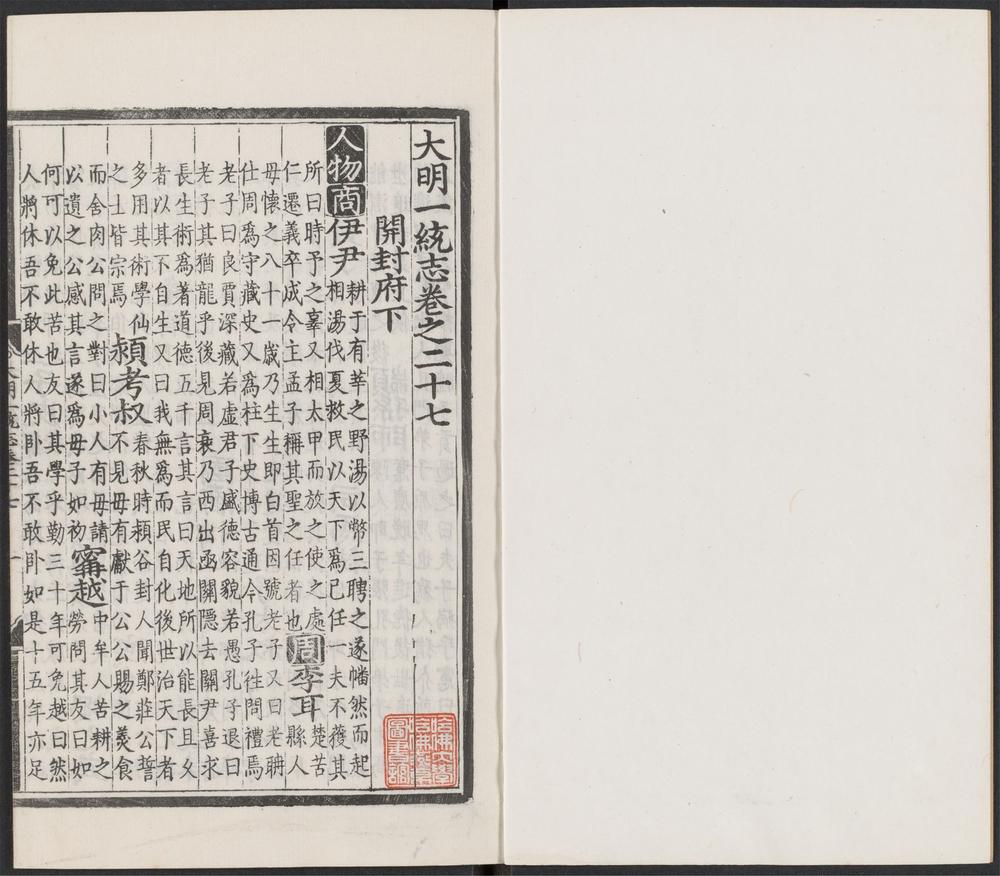 大明一統志卷之二十七
開封府下
人物 商 伊尹 耕于有莘之野湯以幣三聘之遂幡然而起
相湯伐夏救民以天下爲己任一夫不獲其
所曰時予之辜又相太甲而放之使之處
仁遷義卒成令主孟子稱其聖之任者也 周 李耳 楚苦
縣人
母懷之八十一歲乃生生即白首因號老子又曰老聃
仕周爲守藏史又爲柱下史博古通今孔子徃問禮焉
老子曰良賈深藏若虛君子盛德容貌若愚孔子退曰
老子其猶龍乎後見周衰乃西出函關隱去關尹喜求
長生術爲著道德五千言其言曰天地所以能長且久
者以其不自生又曰我無爲而民自化後世治天下者
多用其術學仙
之士皆宗焉 潁考叔 春秋時潁谷封人聞鄭莊公誓
不見母有獻于公公賜之羹食
而舍肉公問之對曰小人有母請
以遺之公感其言遂爲母子如初 甯越 中牟人苦耕之
勞問其友曰如
何可以免此苦也友曰其學乎勤三十年可免越曰然
人將休吾不敢休人將卧吾不敢卧如是十五年亦足
哈佛大學
哈佛燕京
圖書館